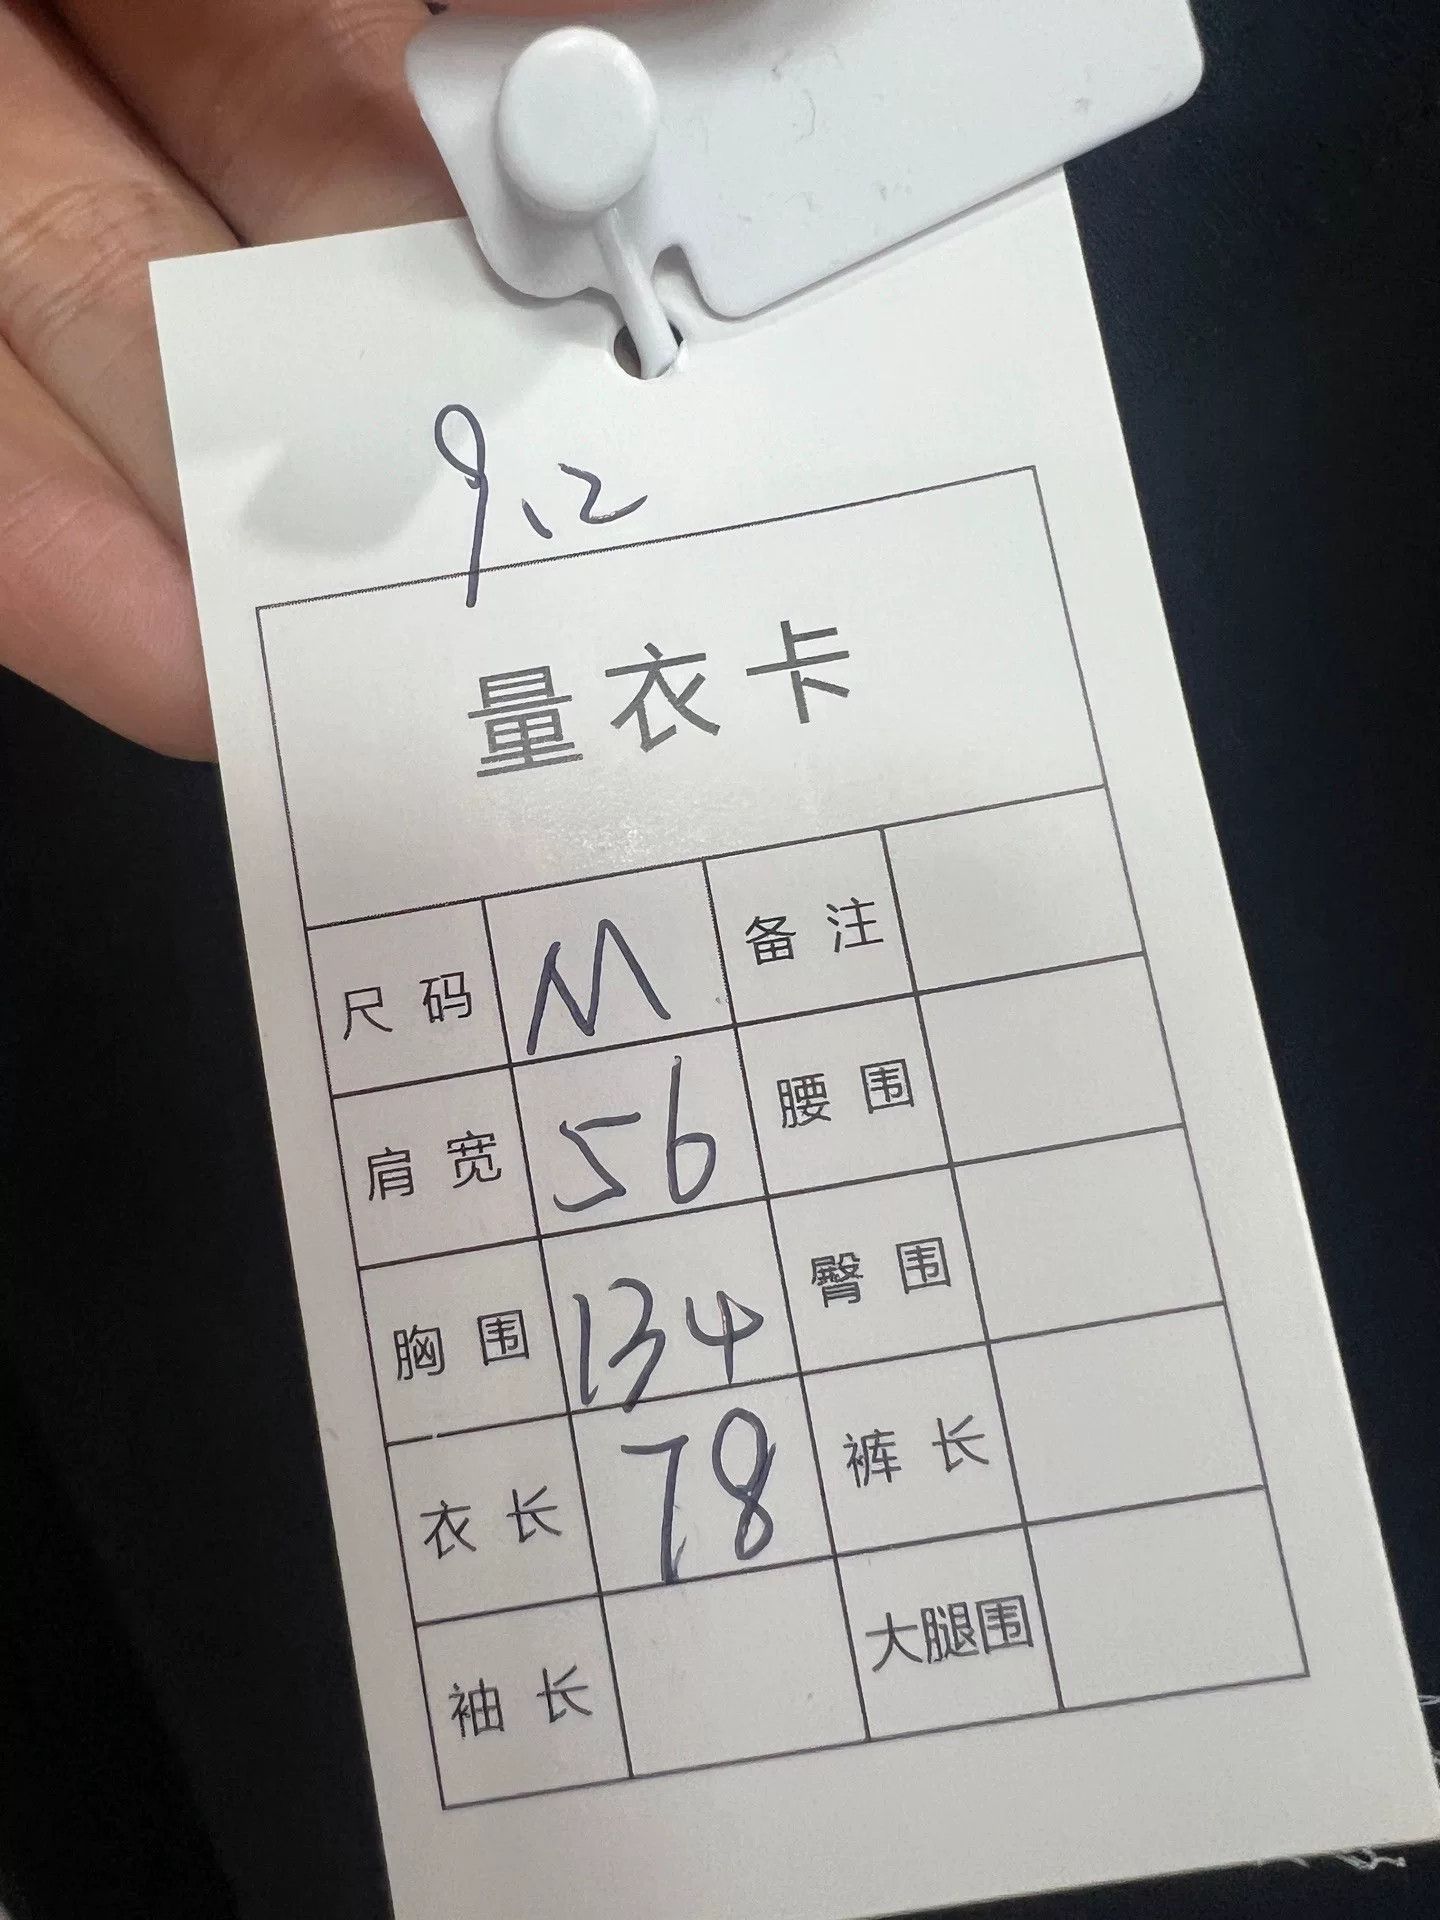 9.2
量衣卡
尺码 M 备注
肩宽 56 腰围
胸围 134 臀围
衣长 78 裤长
袖长 大腿围